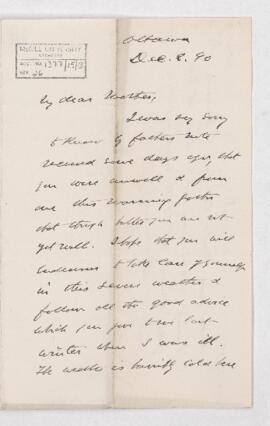 McGILL UNIVERSITY
ARCHIVES
ACC. NO. 1377/15/3
REF. 26
Ottawa
Dec. 8. 90
My dear Mother,
I was very sorry
to know by fathers note
received some days ago, that
you were unwell & from
one this morning
that though better you are not
yet well. I hope that you will
endeavour to take care of yourself
in this severe weather &
follow all the good advice
which you gave to me last
winter when I was ill.
The weather is terribly cold here